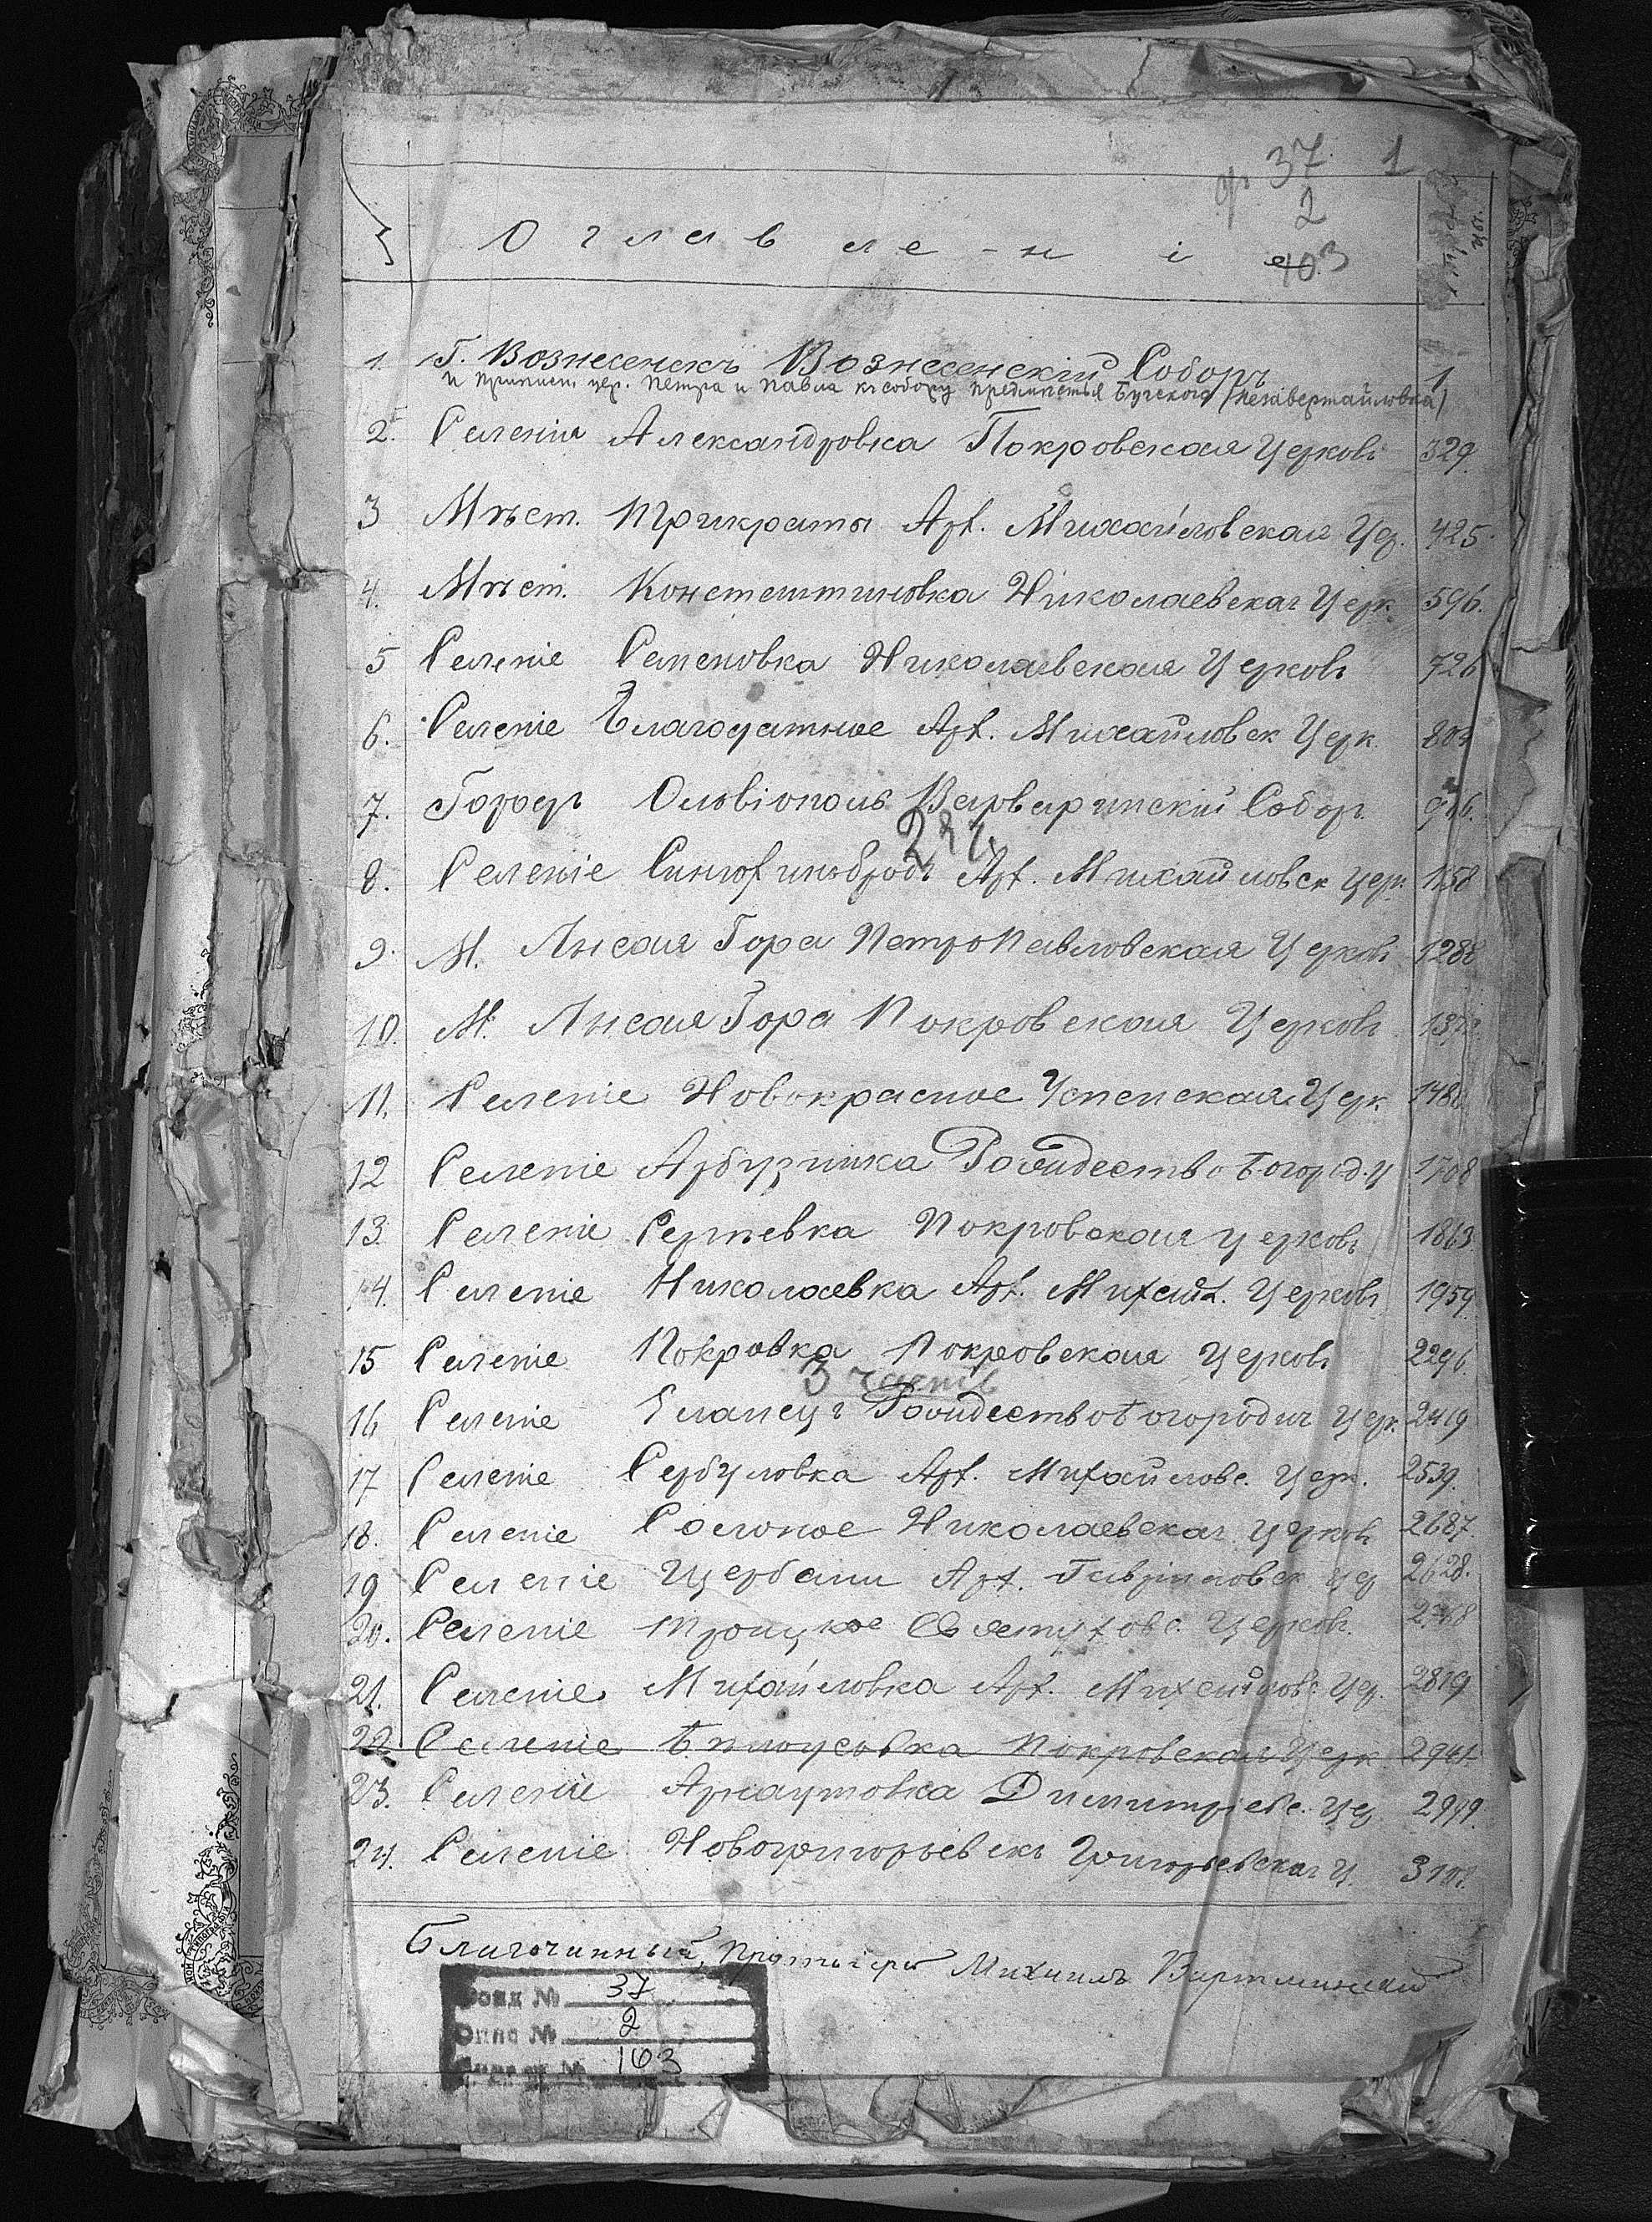 37 1
2
103
Оглавленіе
1. Г. Вознесенскъ Вознесенскій Соборъ 1
и припис. цер. Петра и Павла къ собору предмѣстья Бугскаго
2. Селенія Александровка Покровская Церковь 329.
3 Мѣст. Прикраты Арх. Михайловская Цер. 425.
4. Мѣст. Константиновка Николаевская Церк. 596.
5 Селеніе Семеновка Николаевская Церковь 726
6. Селеніе Благодатное Арх. Михайловск Церк. 803
7. Городъ Ольвіополь Варваринскій Соборъ
8. Селеніе Синюхинъбродъ Арх. Михайловск Цер. 1158
9. М. Лысая Гора ПетроПавловская Церковь 1288
10. М. Лысая Гора Покровская Церковь
11. Селеніе Новокрасное Успенская Церк.
12 Селеніе Арбузинка Рождество Богород. Ц 1708
13. Селеніе Сергѣевка Покровская Церковь 1863.
14. Селеніе Николаевка Арх. Михайл. Церковь 1959.
15 Селеніе Покровка Покровская Церковь 2296
3 часть
16 Селеніе Еланецъ РождествоБогородич Церк. 2419
17 Селеніе Сербуловка Арх. Михайловс. Церк. 2539.
18. Селеніе Солоное Николаевская Церковь 2687.
19 Селеніе Щербани Арх. Гавріиловск Цер 2628.
20. Селеніе Троицкое Святодуховс. Церковь.
21. Селеніе Михайловка Арх. Михайловс. Цер. 2819
22 Селеніе Бѣлоусовка Покровская Церк. 2941
23. Селеніе Арнаутовка Димитріевс. Цер 2999.
24. Селеніе Новогригорьевскъ Григорьевская Ц.
Благочинный, Протоіерей Михаилъ
Фонд № 37
Опис № 2
№ 103